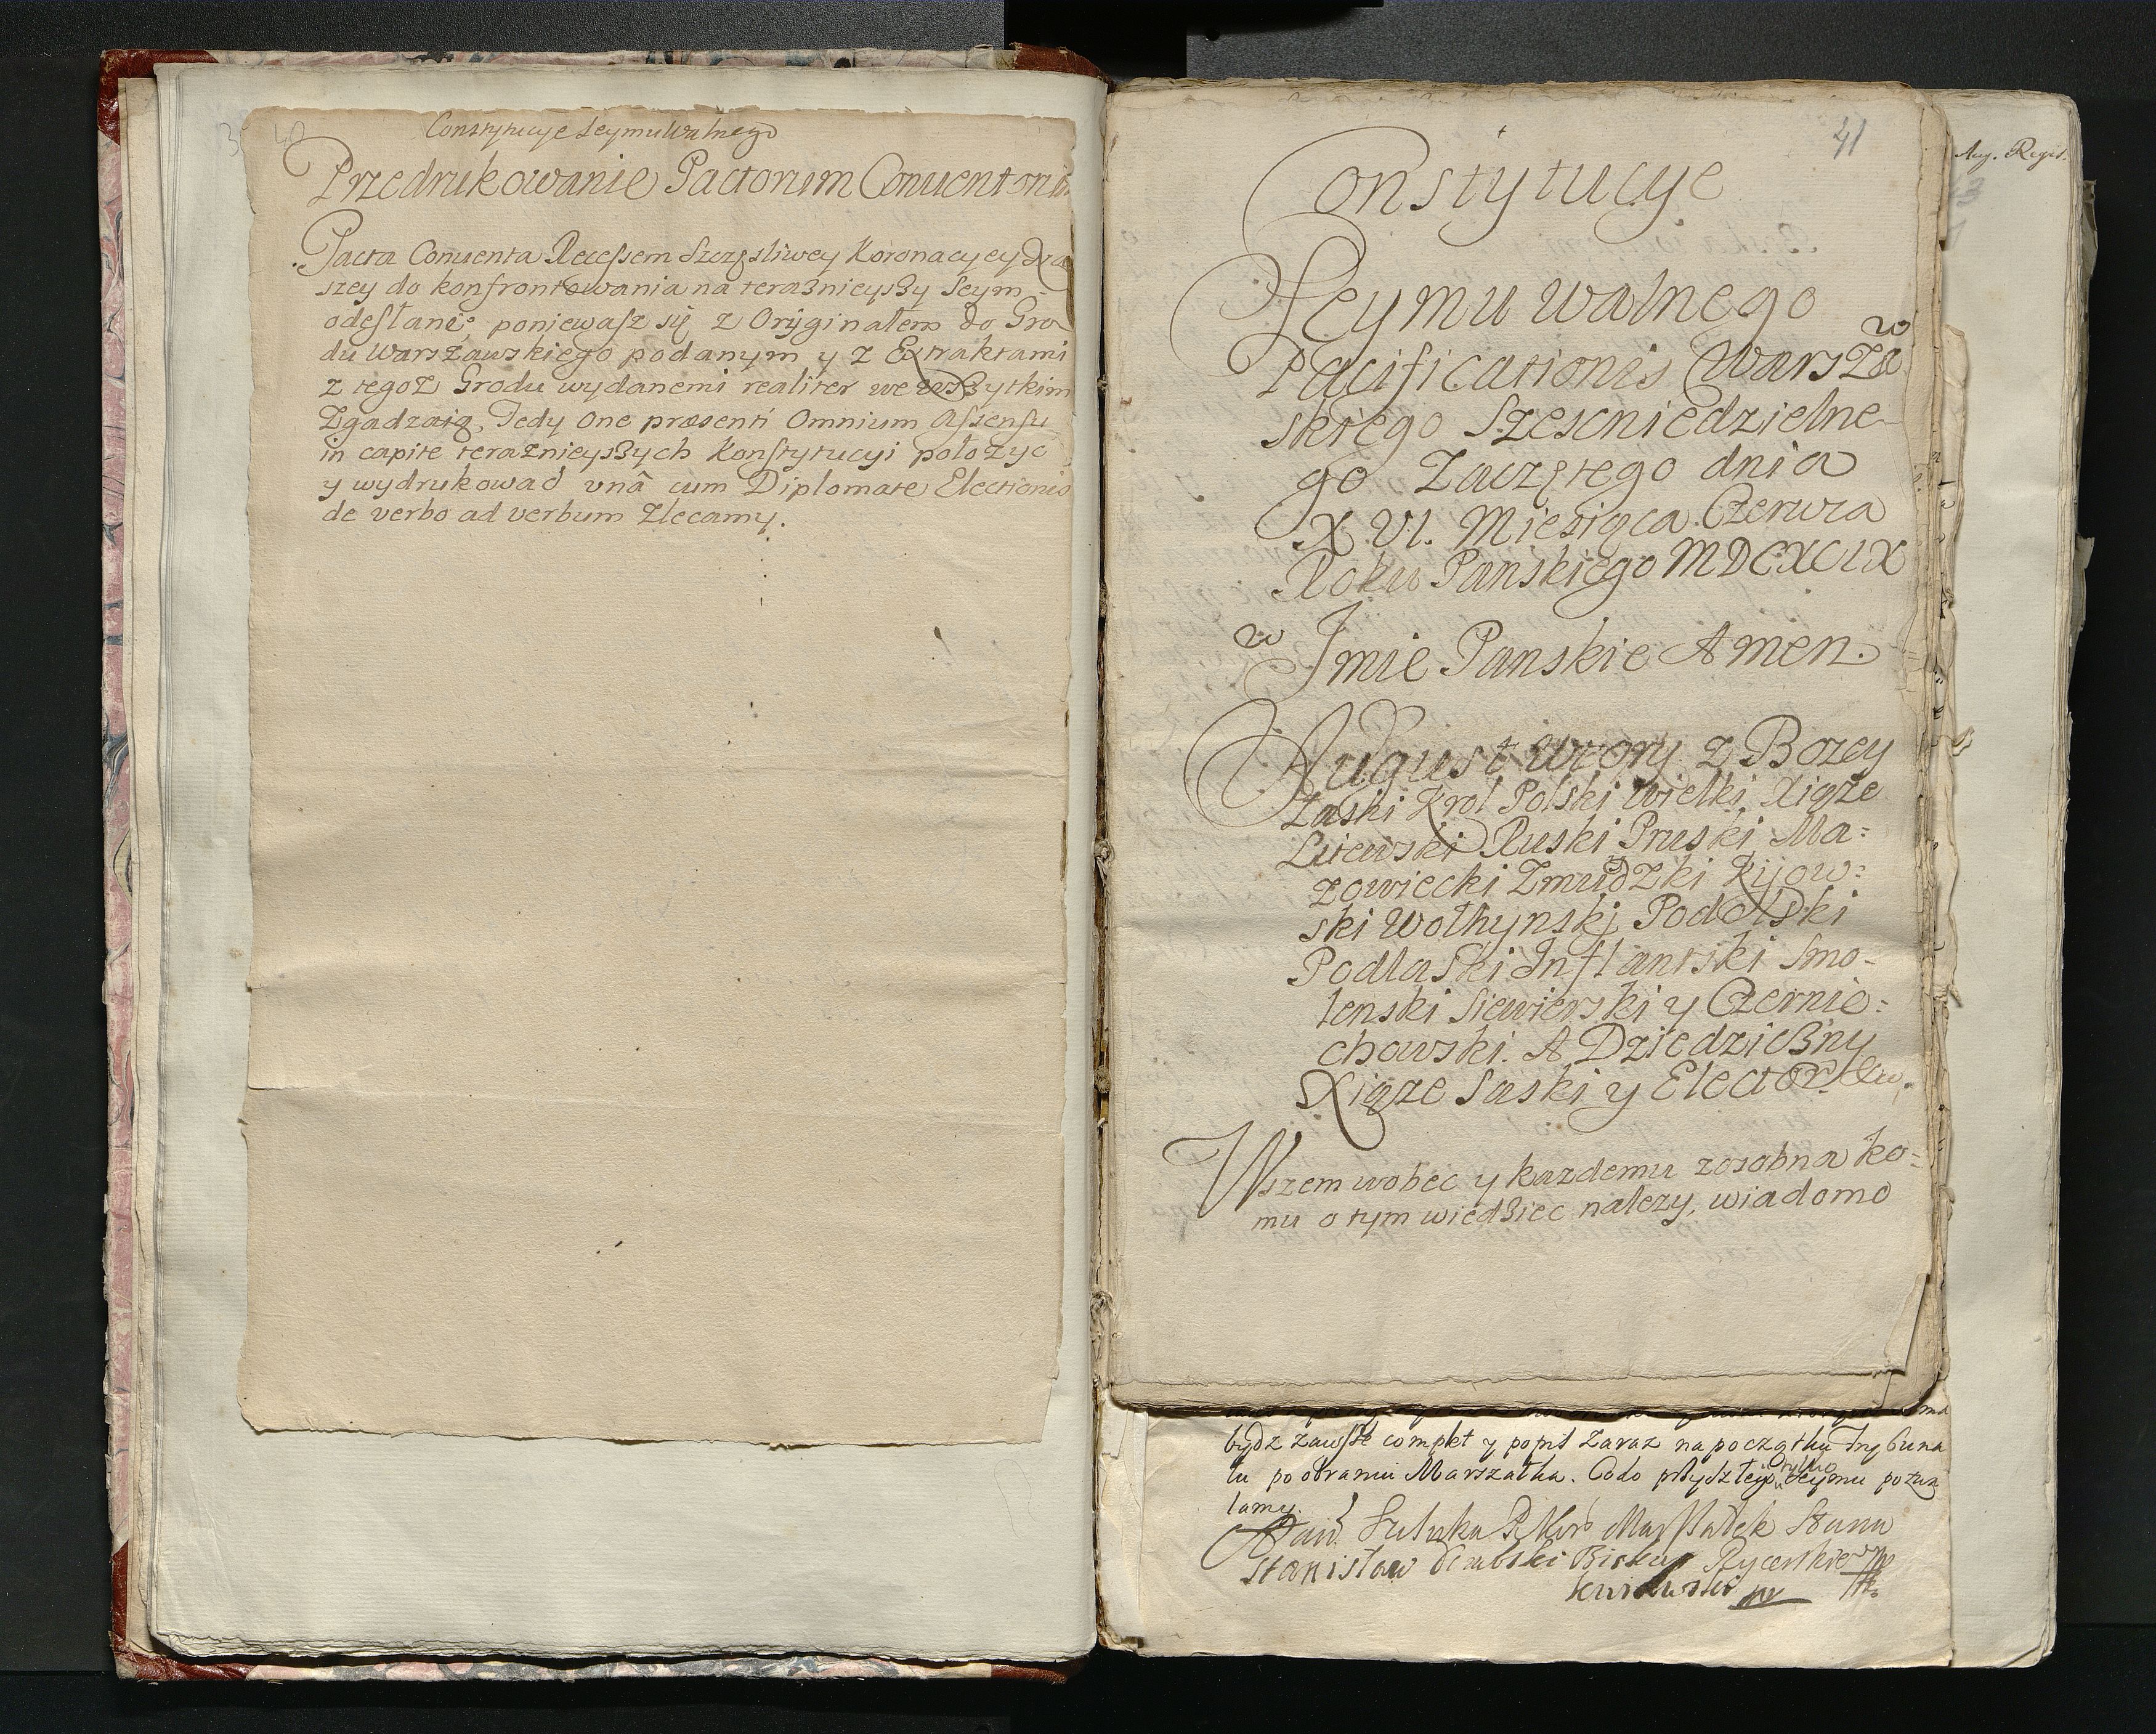 40
Constytucye Seymu Walnego
Przedrukowanie Pactorum Conuentoru
Pacta Conuenta Recessem Szczęsliwey Koronacyey Na
szey do konfrontowania na teraznieyszy Seym
odesłane poniewasz się z Oryginałem do Gro
du Warszawskiego podanym y z Extraktami
z tegoz Grodu wydanemi realiter we wszytkim
Zgadzaią, Tedy One præsenti Omnium Assensu
in capite teraznieyszych Konstytucyi połozyc
y wydrukowac vnâ cum Diplomate Electionis
de verbo ad verbum Zlecamy.
41
Constytucye
Seymu walnego
Pacificationis Warszaw
skiego Szescniedzielne
go Zaczętego dnia
XVI. Miesiąca Czerwca
Roku Panskiego MDCXCIX
w Imie Panskie Amen.
August wtory z Bozey
Łaski Krol Polski Wielki Xiąze
Litewski Ruski Pruski Ma=
zowiecki Zmudzki Kijow=
ski Wołhynski Podolski
Podlaski Inflantski Smo=
lenski Siewierski y Czernie=
chowski. A Dziedziczny
Xiąze Saski y Elector
Wszem wobec y kazdemu zosobna ko=
mu o tym wiedziec nalezy, wiadomo
Aug. Regis.
bydz zawsze complet y popis zaraz na początku Trybuna
łu po obraniu Marszałka. Co do przyszłego tylko Seymu pozwa
lamy.
Szczuka Marszałek Stanu
Stanisław Biskup Rycerskiego